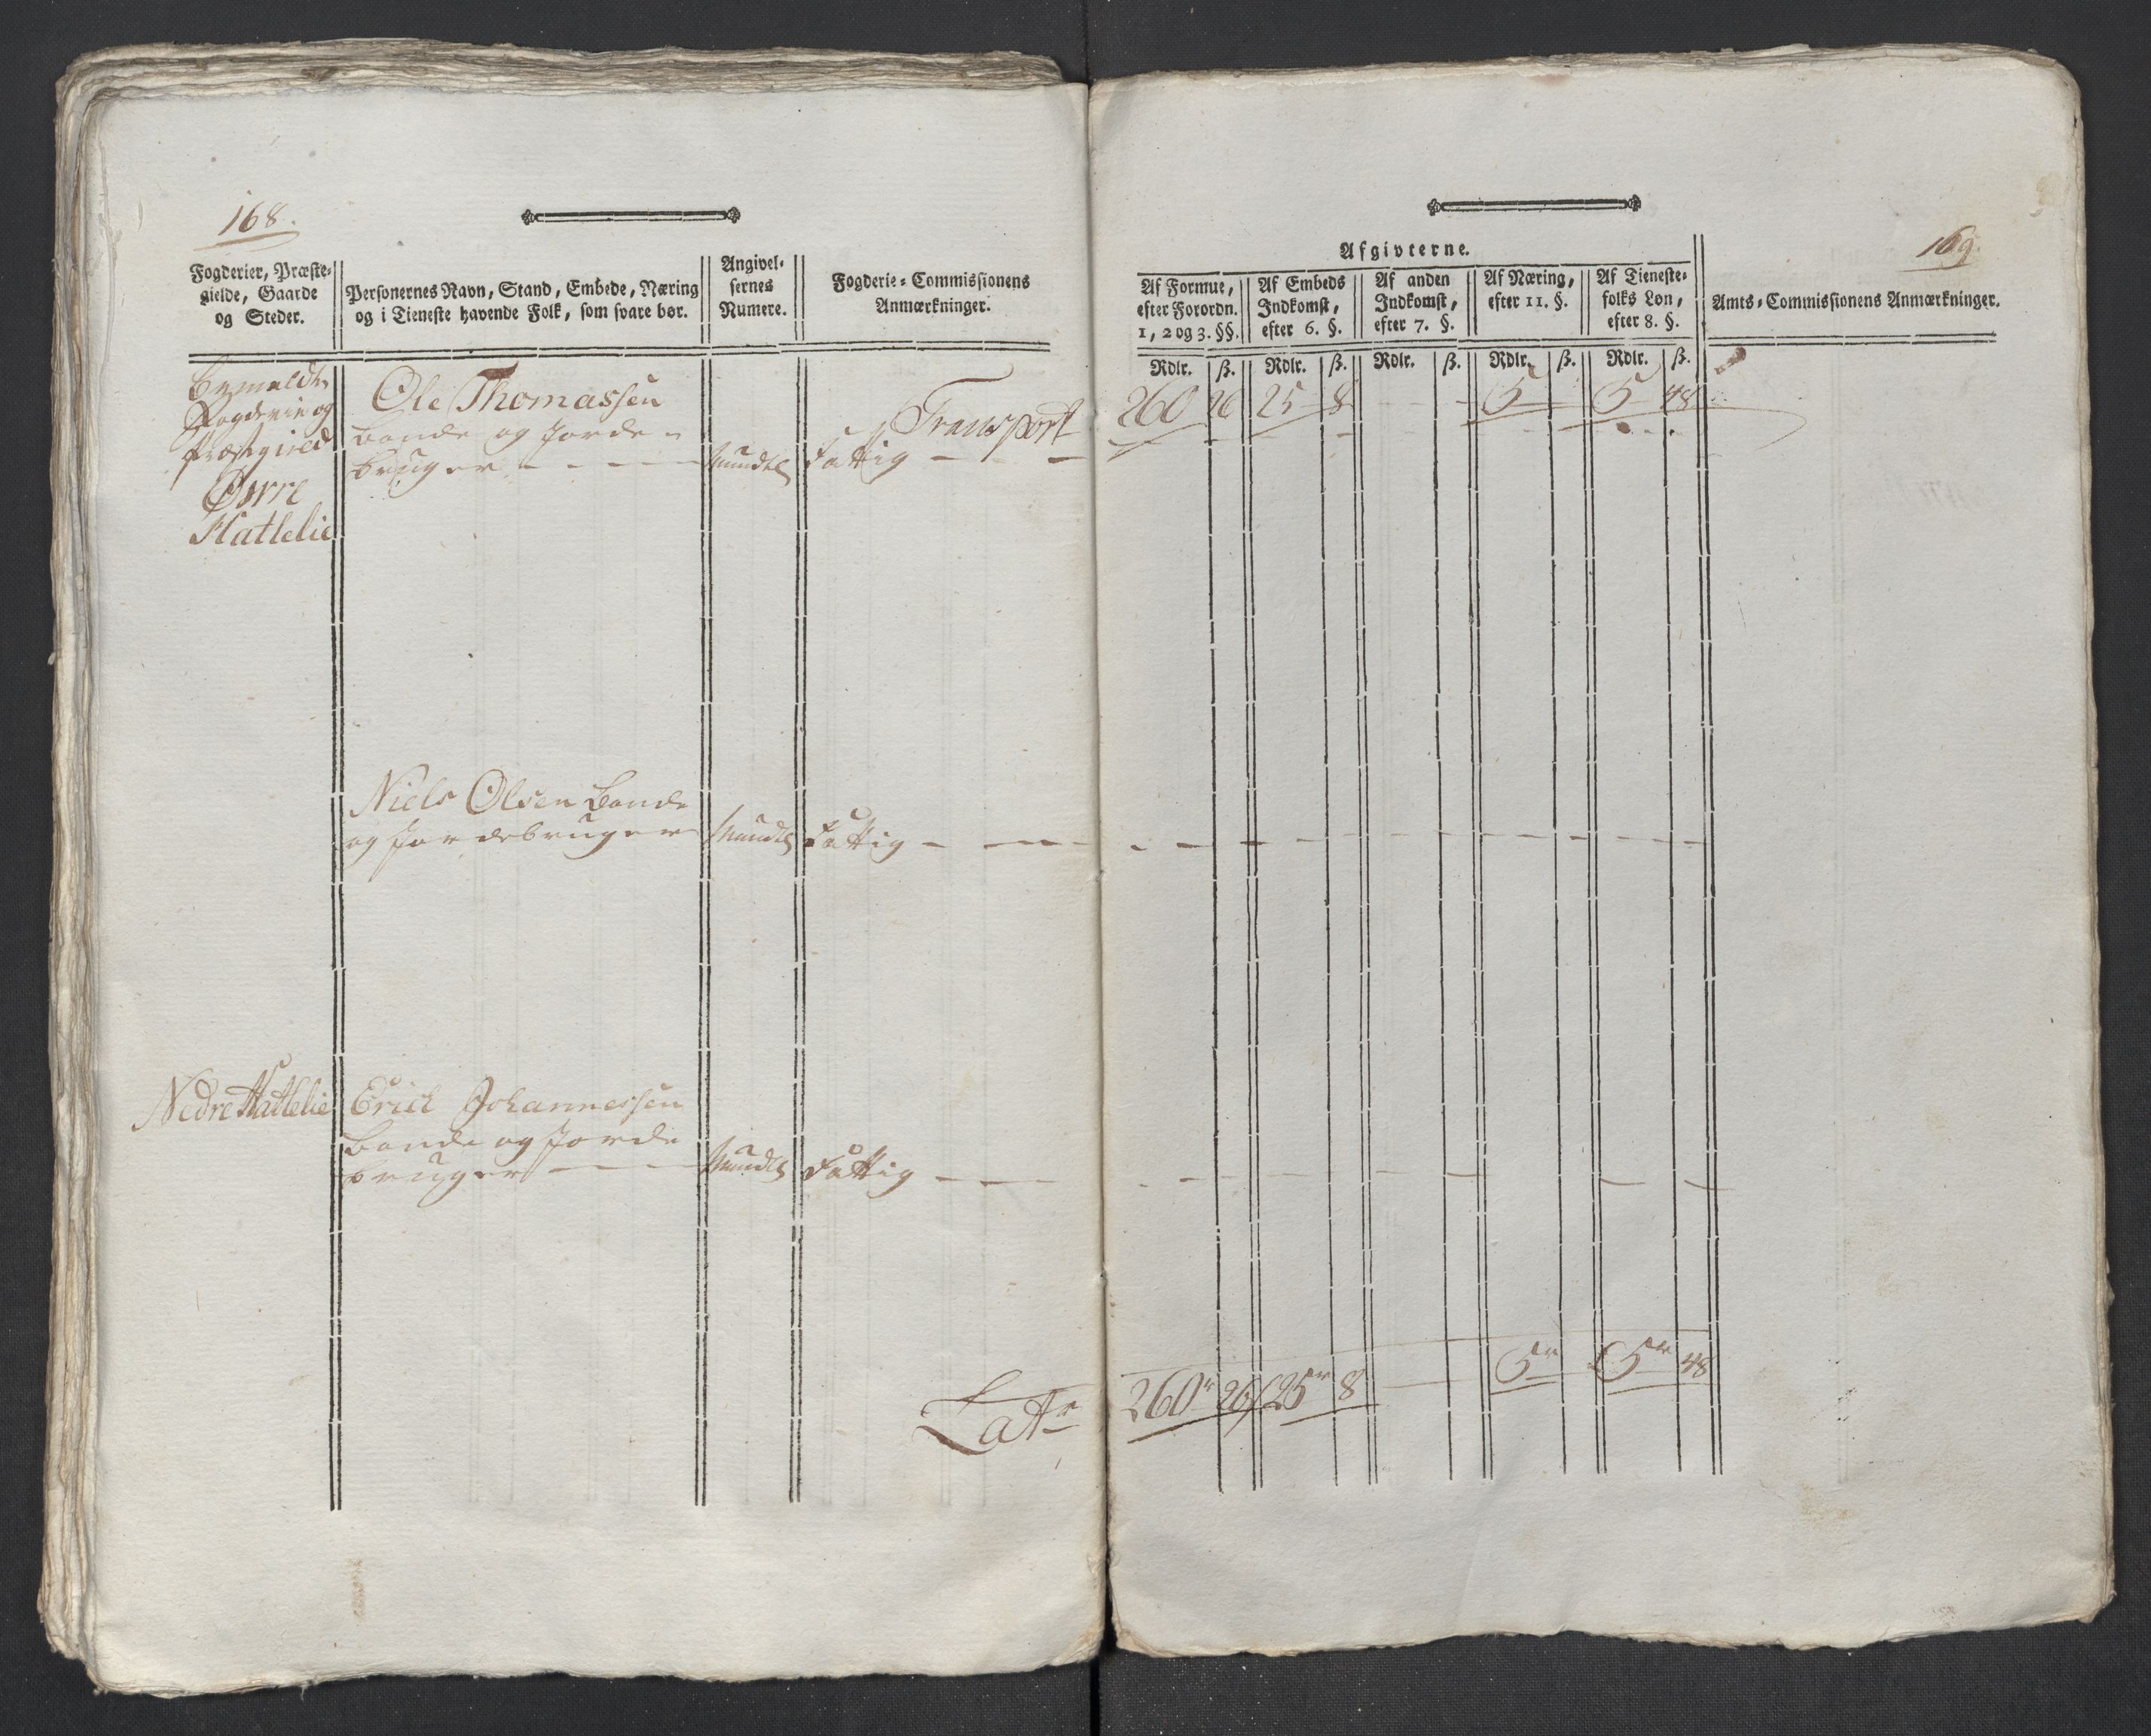 168.
Fogderier, Præste-
gielde, Gaarde
og Steder.
Personernes Navn, Stand, Embede, Næring
og i Tieneste havende Folk, som svare bør.
Angivel-
sernes
Numere.
Fogderie-Commissionens
Anmærkninger.
Bemeldte
Fogderie og
Præstegield
Øvre
Hatlelie
Ole Thomassen
Bonde og Jorde-
bruger
Mundtl
Transport
Fattig
Niels Olsen Bonde
og Jordebruger
Mundtl
Fattig
Nedre Hatlelie
Erich Johannessen
Bonde og Jorde
bruger
Mundtl
Fattig
Latr
169.
Afgivterne.
Af Formue,
efter Forordn.
1, 2 og 3. §§.
Af Embeds
Indkomst,
efter 6. §.
Af anden
Indkomst,
efter 7. §.
Af Næring,
efter 11. §.
Af Tieneste-
folks Løn,
efter 8. §.
Amts-Commissionens Anmærkninger.
Rdlr. ß. Rdlr. ß. Rdlr. ß. Rdlr. ß. Rdlr. ß.
260 26 25 8 - - 5 - 5 48
260 26 25 8 5 5 48